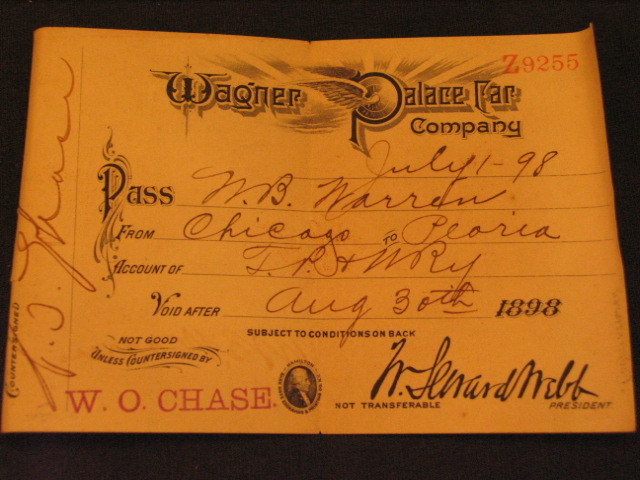 Z9255
Wagner Palace Car
Company
July 1-98
Pass W. B. Warren
From Chicago to Peoria
Account of T. P. & W Ry
Void after Aug 30th 1898
SUBJECT TO CONDITIONS ON BACK
NOT GOOD
UNLESS COUNTERSIGNED BY
W. O. CHASE.
W. Seward Webb
NOT TRANSFERABLE
PRESIDENT
COUNTERSIGNED